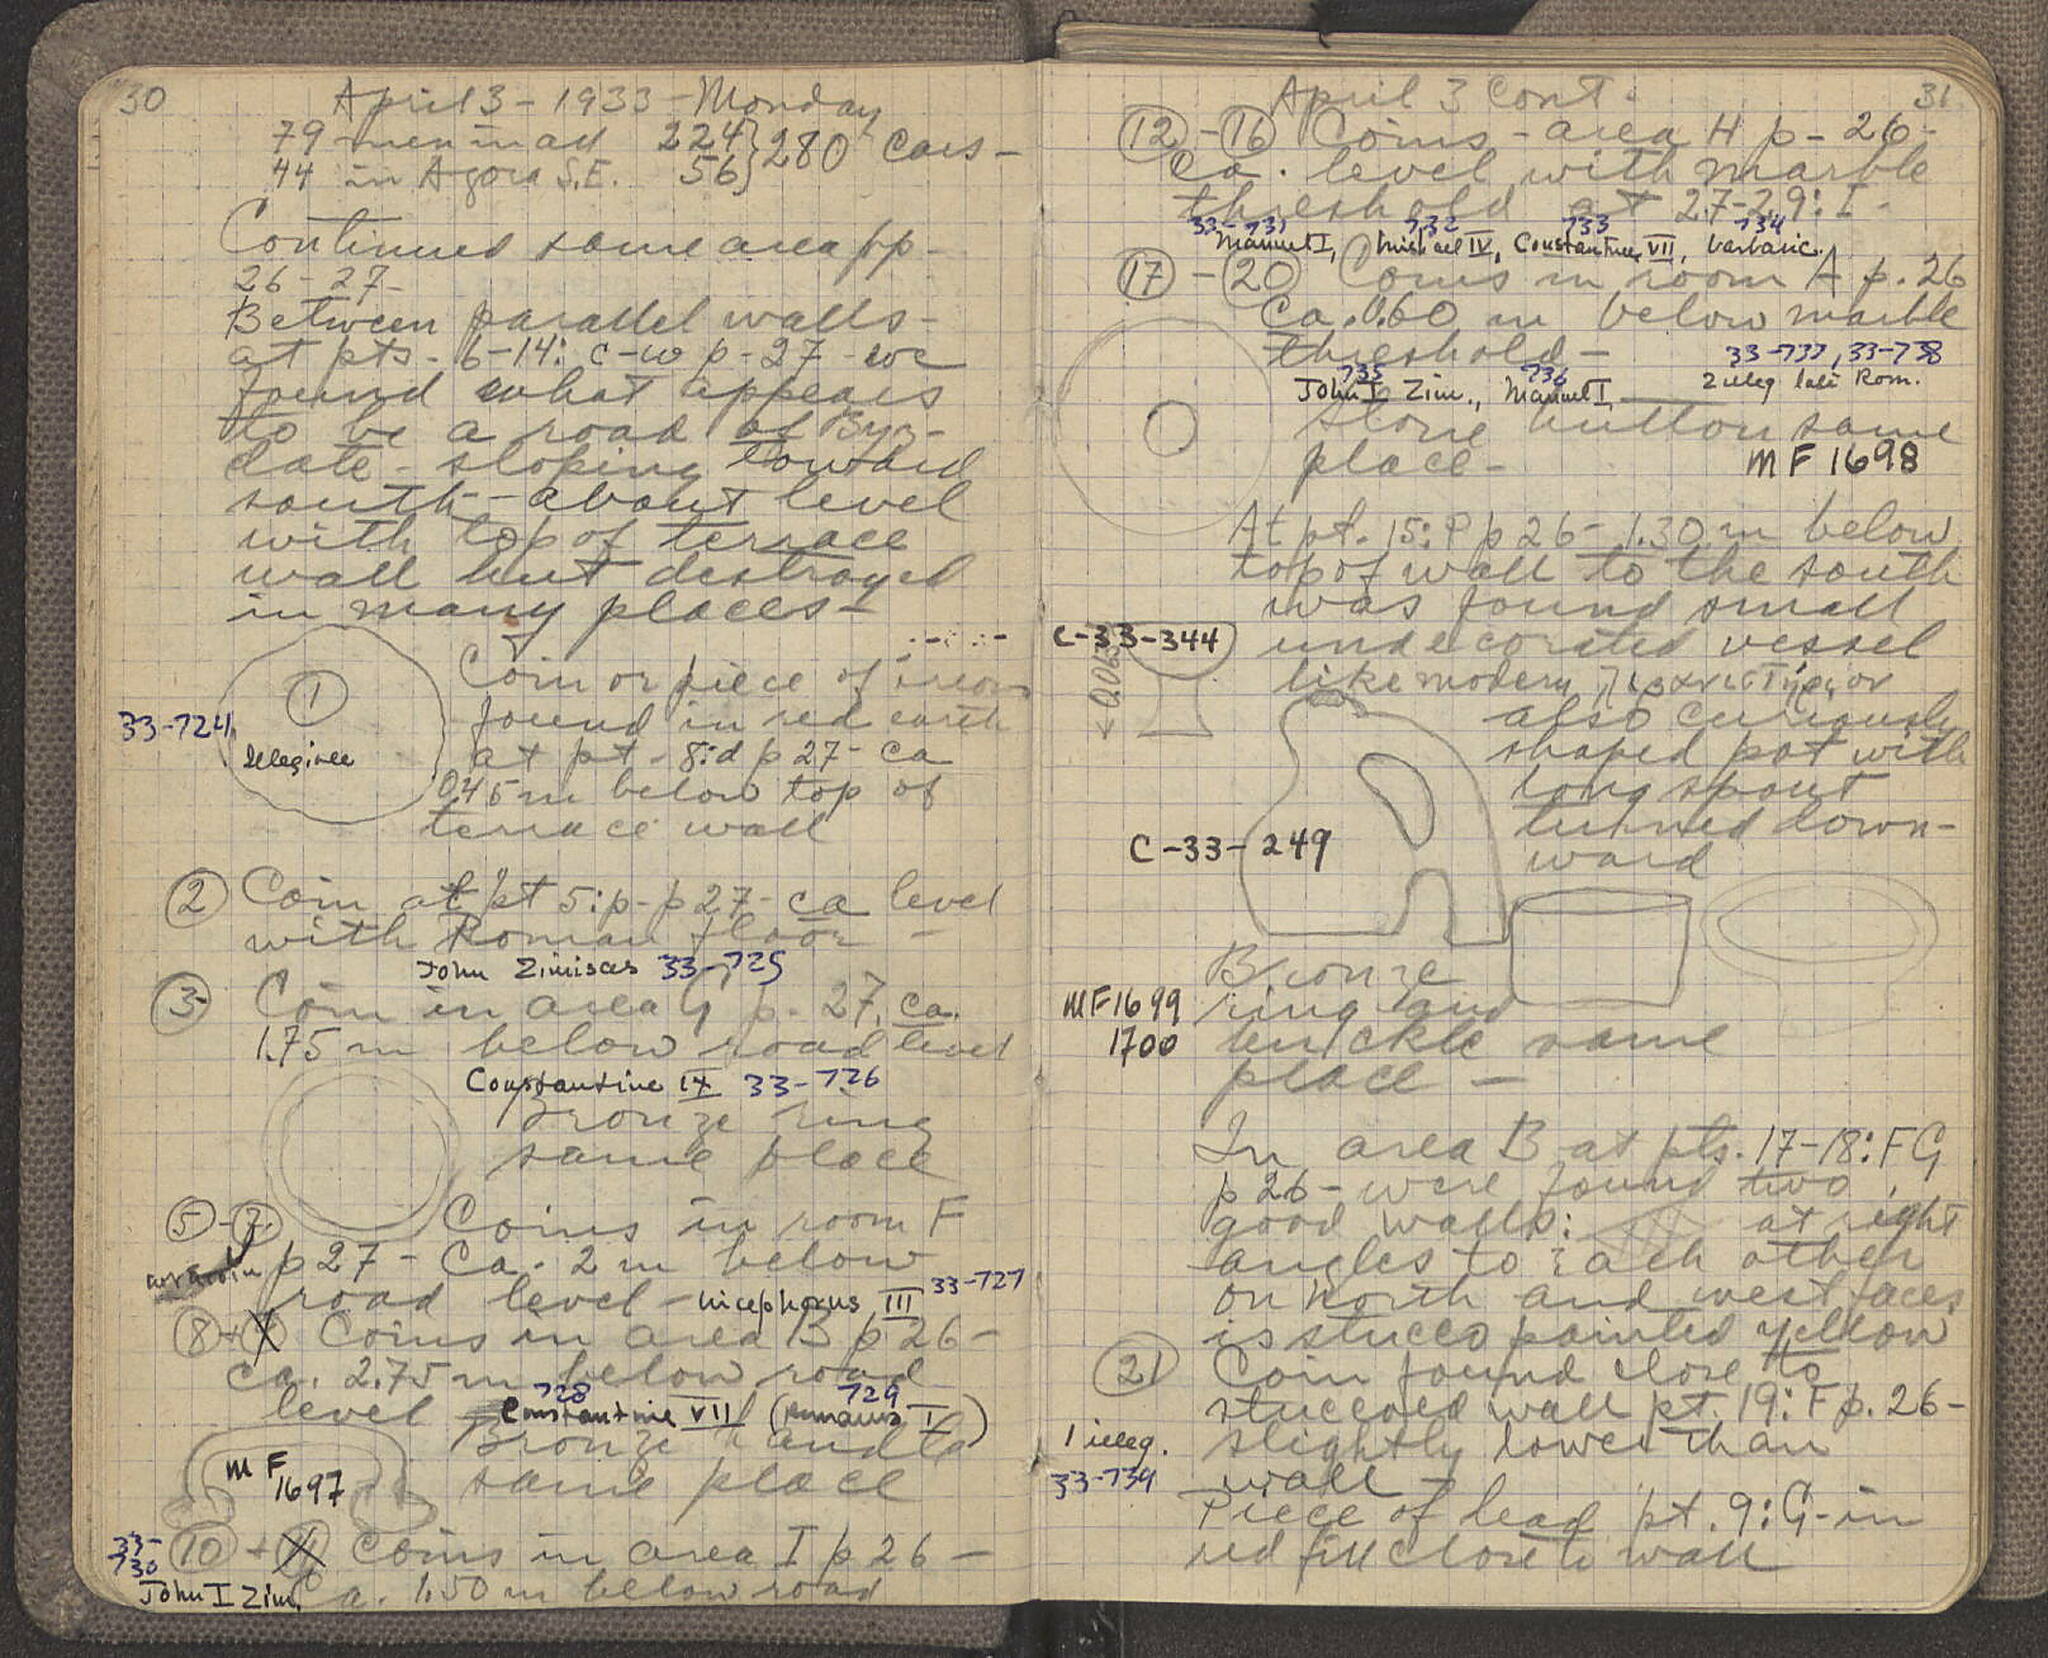 30
April 3 - 1933 - Monday
79 men in all 224 } 280 cars -
44 in Agora S.E. 56 }
Continued same area pp -
26 - 27 -
Between parallel walls -
at pts - 6-14: c-w p - 27 - we
found what appears
to be a road of Byz -
date - sloping toward
south - about level
with top of terrace
wall but destroyed
in many places -
1
Coin or piece of
found in red earth
33-724
at pt - 8:d p 27 - ca
0.45 m below top of
terrace wall
2 Coin at pt 5:p - p 27 - ca level
with Roman floor -
John Zimisces 33-725
3 Coin in area G p. 27. ca.
1.75 m below road level
Constantine IX 33-726
Bronze ring
same place
5 - 7 Coins in room F
p 27 - Ca. 2 m below
road level - Nicephorus III 33-727
8 + Coins in area B p 26 -
ca. 2.75 m below road
728 729
level Constantine VII (Romanus I)
Bronze handle
same place
MF
1697
33-
730
10 + 11 Coins in area I p 26 -
John I Zim. Ca. 1.50 m below road
April 3 Cont. 31
12 - 16 Coins - area H p - 26 -
Ca. level with marble
threshold at 27-29: I -
33-731 732 733 734
Manuel I, Michael IV, Constantine VII, barbaric.
17 - 20 Coins in room A p. 26
Ca. 0.60 m below marble
threshold - 33-737, 33-738
735 736
John I Zim., Manuel I, 2 illeg late Rom.
Stone button same
place - MF 1698
At pt. 15:P p 26 - 1.30 m below
top of wall to the south
was found small
C-33-344 undecorated vessel
like modern
also curiously
shaped pot with
long spout
turned down-
ward
C-33-249
Bronze
MF 1699 ring and
1700 buckle same
place -
In area B at pts. 17-18: FG
p 26 - were found two
good walls: at right
angles to each other
on north and west faces
is stucco painted yellow
21 Coin found close to
stuccoed wall pt. 19: F p. 26 -
1 illeg. slightly lower than
33-739 wall -
Piece of lead pt. 9: G - in
red fill close to wall